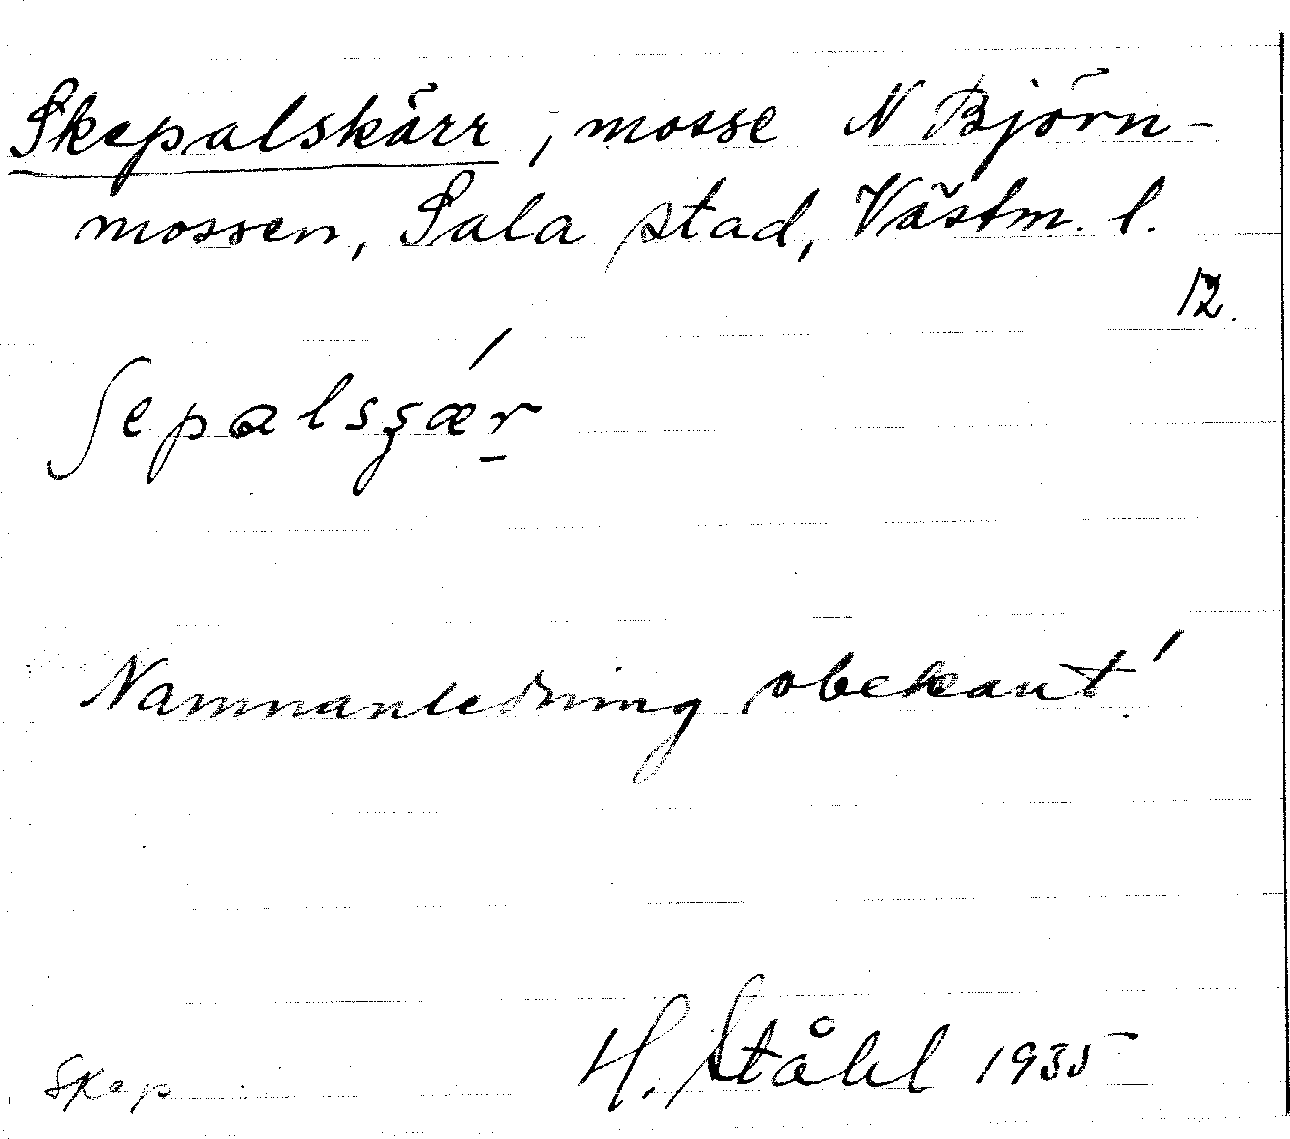 Skepalskärr, mosse N Björn-
mossen, Sala stad, Västm. l.
12.
ʃepalsʂæ´r̲
Namnanledning obekant!
H. Ståhl 1935
Skep